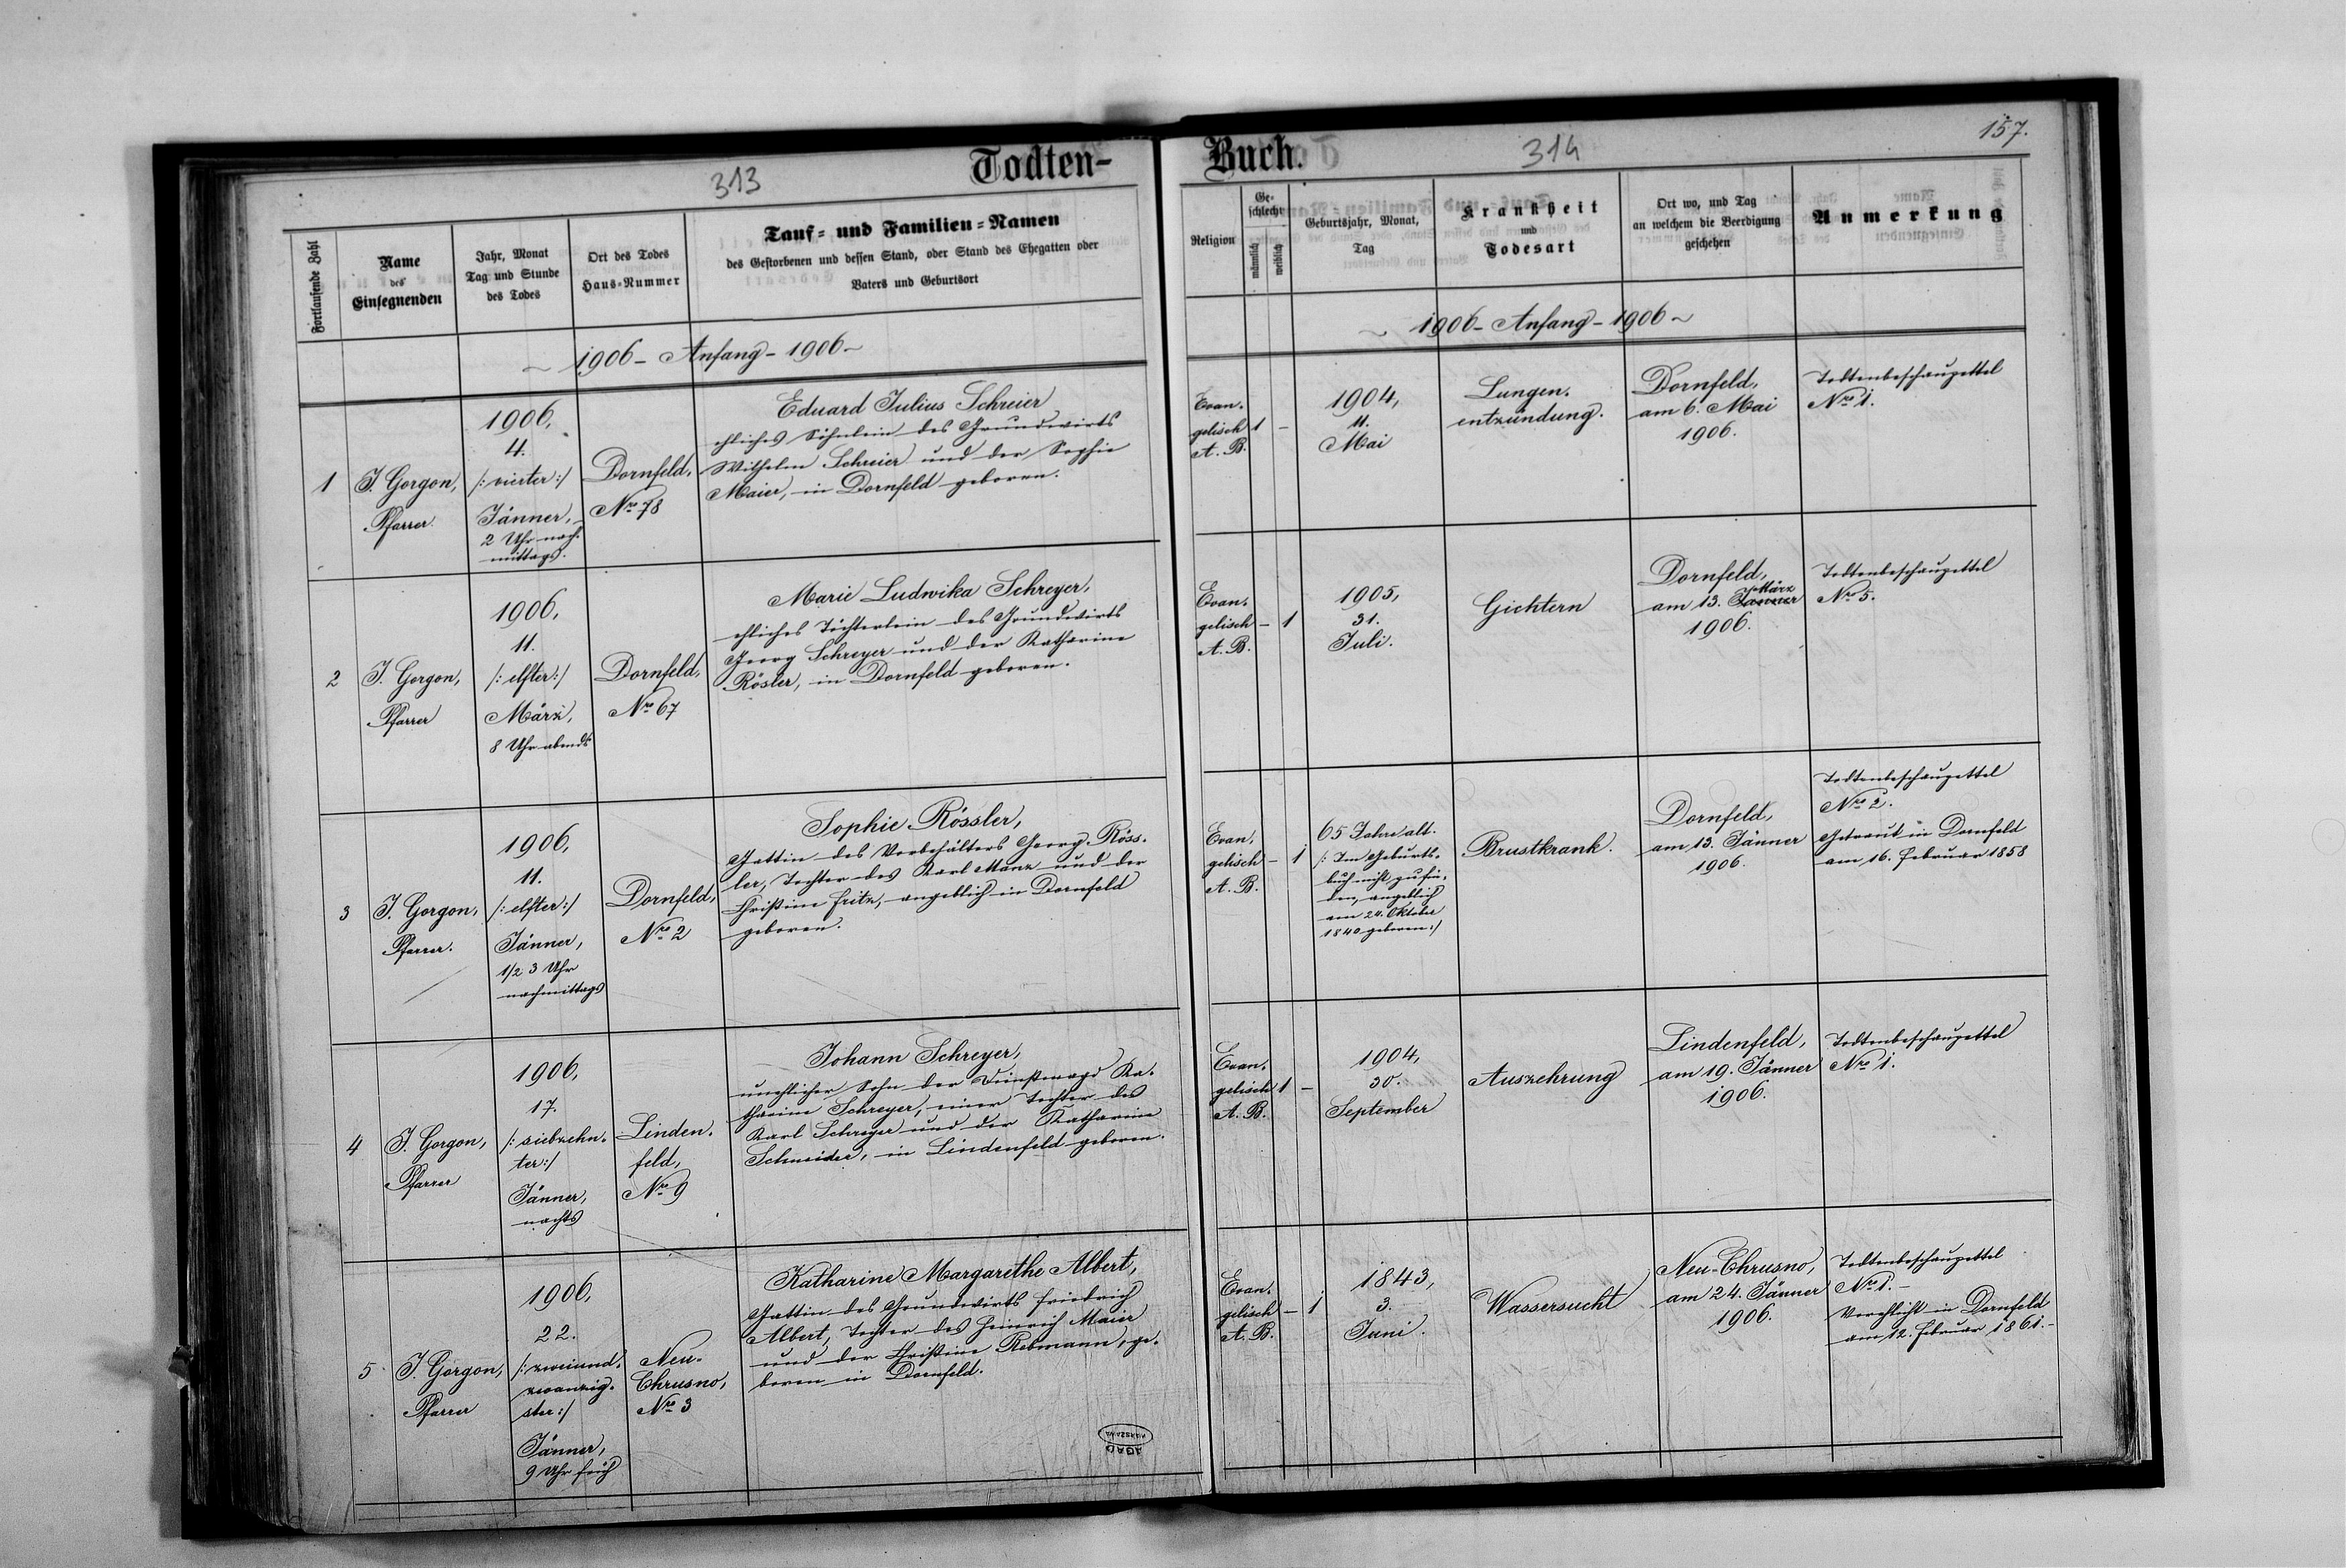 313
Todten-
Fortlaufende Zahl
Name
des
Einsegnenden
Jahr, Monat
Tag und Stunde
des Todes
Ort des Todes
Haus-Nummer
Tauf- und Familien-Namen
des Gestorbenen und dessen Stand, oder Stand des Ehegatten oder
Vaters und Geburtsort
~ 1906 - Anfang - 1906 ~
1
J. Gorgon,
Pfarrer.
1906,
4.
/: vierter :/
Jänner,
2 Uhr nach-
mittags.
Dornfeld,
Nro 78
Eduard Julius Schreier
ehliches Söhnlein des Grundwirts
Wilhelm Schreier und der Sophie
Maier, in Dornfeld geboren.
2
J. Gorgon,
Pfarrer
1906,
11.
/: elfter :/
März,
8 Uhr abends
Dornfeld,
Nro 67
Marie Ludwika Schreyer,
ehliches Töchterlein des Grundwirts
Georg Schreyer und der Katharine
Rösler, in Dornfeld geboren.
3
J. Gorgon,
Pfarrer.
1906,
11.
/: elfter :/
Jänner,
1/2 3 Uhr
nachmittags
Dornfeld,
Nro 2
Sophie Rössler,
Gattin des Vorbehälters Georg Röss-
ler, Tochter des Karl Manz und der
Christine Fritz, angeblich in Dornfeld
geboren.
4
J. Gorgon,
Pfarrer
1906,
17.
/: siebzehn-
ter :/
Jänner,
nachts
Linden-
feld,
Nro 9
Johann Schreyer,
unehlicher Sohn der Dienstmagd Ka-
tharine Schreyer, einer Tochter des
Karl Schreyer und der Katharine
Schneider, in Lindenfeld geboren.
5
J. Gorgon,
Pfarrer
1906,
22.
/: zweiund-
zwanzig-
ster :/
Jänner,
9 Uhr früh
Neu-
Chrusno,
Nro 3
Katharine Margarethe Albert,
Gattin des Grundwirts Friedrich
Albert, Tochter des Heinrich Maier
und der Christine Rebmann, ge-
boren in Dornfeld.
AGAD
WARSZAWA
Buch.
314
157.
Religion
Ge-
schlecht
männlich
weiblich
Geburtsjahr, Monat,
Tag
Krankheit
und
Todesart
Ort wo, und Tag
an welchem die Beerdigung
geschehen
Anmerkung
~ 1906 - Anfang - 1906 ~
Evan-
gelisch
A. B.
1 -
1904,
11.
Mai
Lungen-
entzündung.
Dornfeld,
am 6. Mai
1906.
Todtenbeschauzettel
Nro 1.
Evan-
gelisch
A. B.
- 1
1905,
31.
Juli.
Gichtern
Dornfeld,
März
am 13. Jänner
1906.
Todtenbeschauzettel
Nro 5.
Evan-
gelisch
A. B.
- 1
65 Jahre alt.
/: Im Geburts-
buch nicht zu fin-
den, angeblich
am 24. Oktober
1840 geboren :/
Brustkrank.
Dornfeld,
am 13. Jänner
1906.
Todtenbeschauzettel
Nro 2.
Getraut in Dornfeld
am 16. Februar 1858
Evan-
gelisch
A. B.
1 -
1904,
30.
September
Auszehrung
Lindenfeld,
am 19. Jänner
1906.
Todtenbeschauzettel
Nro 1.
Evan-
gelisch
A. B.
- 1
1843,
3.
Juni.
Wassersucht
Neu-Chrusno,
am 24. Jänner
1906.
Todtenbeschauzettel
Nro 1. -
Verehlicht in Dornfeld
am 12. Februar 1861. -